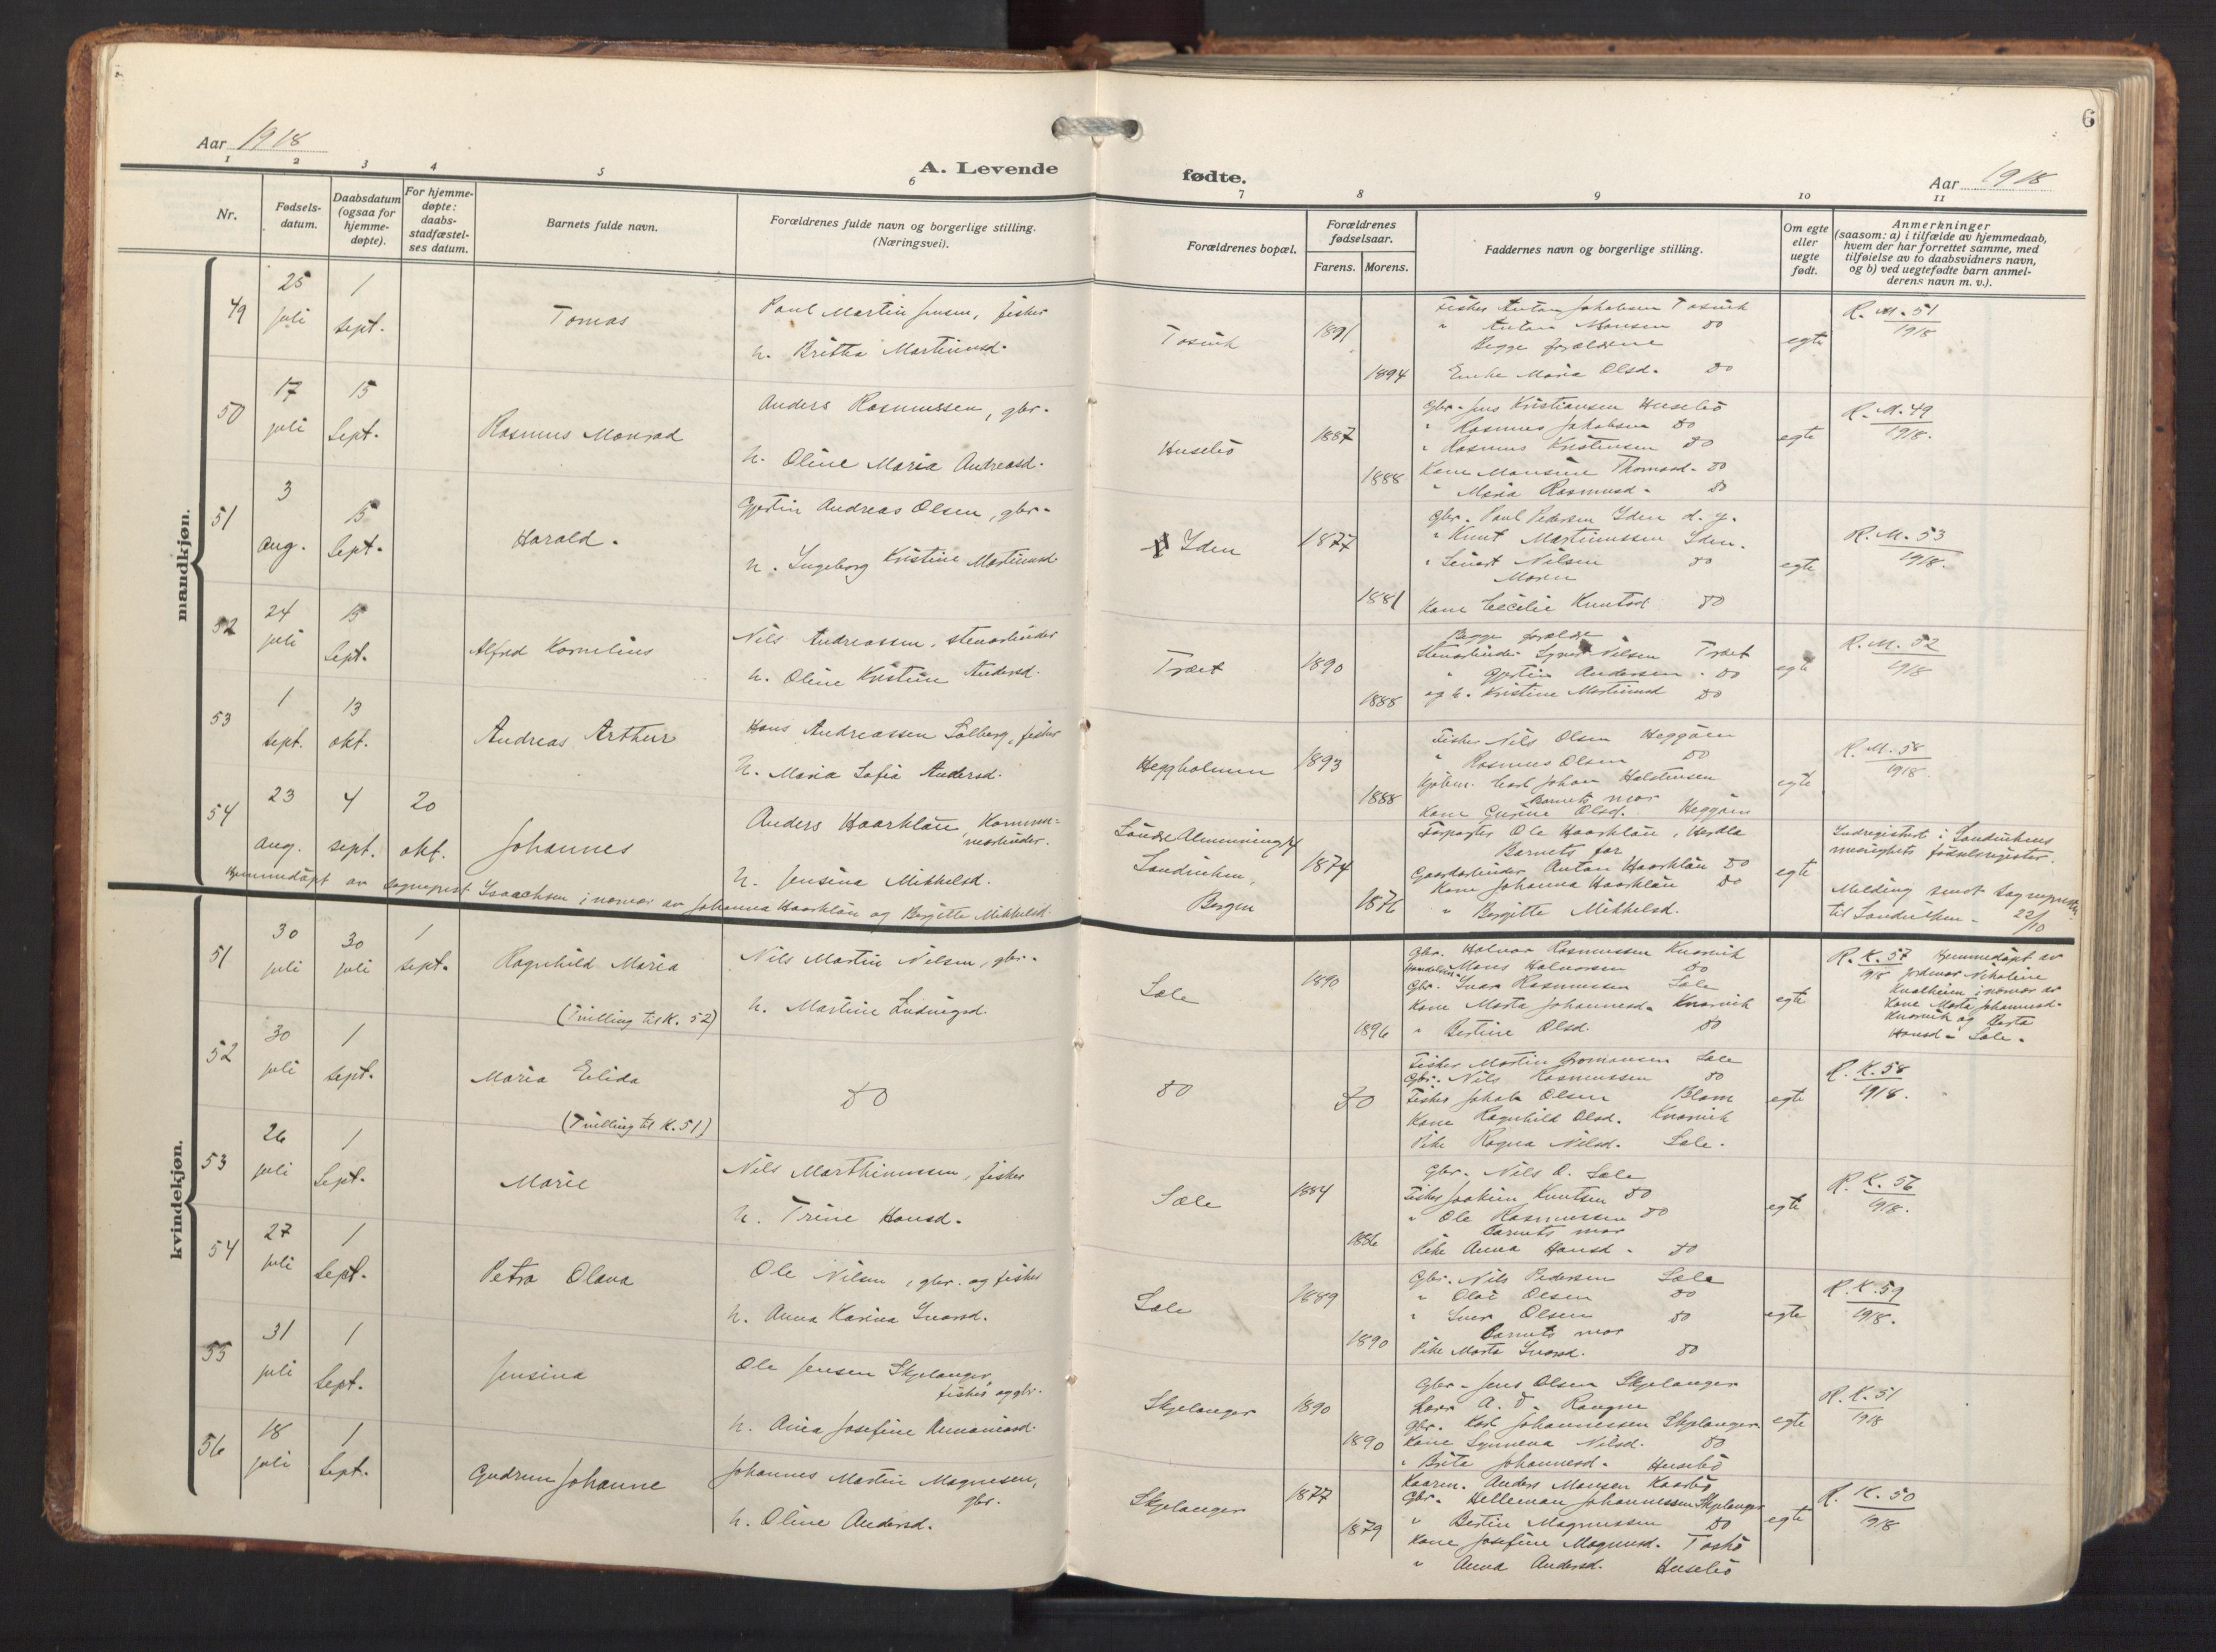 6
Aar 1918
A. Levende
fødte.
Aar 1918
1 2 3 4 5 6 7 8 9 10 11
Nr.
Fødsels-
datum.
Daabsdatum
(ogsaa for
hjemme-
døpte).
For hjemme-
døpte:
daabs-
stadfæstel-
ses datum.
Barnets fulde navn.
Forældrenes fulde navn og borgerlige stilling.
(Næringsvei).
Forældrenes bopæl.
Forældrenes
fødselsaar.
Farens. Morens.
Faddernes navn og borgerlige stilling.
Om egte
eller
uegte
født.
Anmerkninger
(saasom: a) i tilfælde av hjemmedaab,
hvem der har forrettet samme, med
tilføielse av to daabsvidners navn,
og b) ved uegtefødte barn anmel-
derens navn m. v.).
mandkjøn.
49
25
juli
1
sept.
Tomas
Paul Martin Jensen, fisker
h. Britha Martinusd.
1891
1894
Fisker Anton Jakobsen
" Anton Monsen do
Begge forældrene
Enke Maria Olsd. do
egte
R. M. 51
1918
50
17
juli
15
Sept.
Rasmus Monrad
Anders Rasmussen, gbr.
h. Oline Maria Andreasd.
Husebö
1887
1888
Gbr. Jens Kristiansen Husebö
" Rasmus Jakobsen do
" Rasmus Kristensen do
Kone Monsine Thomasd. do
" Maria Rasmusd. do
egte
R. M. 49
1918.
51
3
aug.
15
Sept.
Harald.
Gjertin Andreas Olsen, gbr.
h. Ingeborg Kristine Martinusd.
Iden
1877
1881
Gbr. Paul Pedersen Iden d. y.
" Knut Martinussen Iden.
" Sivert Nilsen do
Moren
Kone Cecilie Knutsd. do
egte
R. M. 53
1918.
52
24
juli
15
Sept.
Alfred Kornelius
Nils Andreassen, stenarbeider
h. Oline Kristine Andersd.
Træet
1890
1888
Begge forældre
Stenarbeider Nilsen Træet
" Gjertin Andersen do
og h. Kristine Martinusd do
egte
R. M. 52
1918
53
1
sept.
13
okt.
Andreas Arthur
Hans Andreassen Solberg, fisker
h. Maria Sofia Andersd.
Heggholmen
1893
1888
Fisker Nils Olsen Heggöen
" Rasmus Olsen do
Kjöbm. Carl Johan Halstensen
Barnets mor
Kone Gurine Olsd. Heggöen
egte
R. M. 58
1918.
54
23
aug.
4
sept.
20
okt.
Johannes
Anders Haarklau, Kommu-
nearbeider.
h. Jensina Mikkelsd.
Söndre Almenning 14
Sandviken,
Bergen
1874
1876
Forpagter Ole Haarklau, Herdla
Barnets far
Gaardarbeider Anton Haarklau do
Kone Johanna Haarklau do
" Bergitte Mikkelsd.
egte
Indregistrert i Sandvikens
menighets födselsregister.
Melding sendt Sogneprest
til Sandviken 22/10
Hjemmedöpt av sogneprest Isaachsen i nærvær av Johanna Haarklau og Bergitte Mikkelsd.
kvindekjøn.
51
30
juli
30
juli
1
sept.
Ragnhild Maria
(Tvilling til K. 52)
Nils Martin Nilsen, gbr.
h. Martine Ludvigsd.
Sæle
1890
1896
Gbr. Halvor Rasmussen Knarvik
Handelsm. Mons Halvorsen do
Gbr. Ivar Rasmussen Sæle
Kone Marta Johannesd. Knarvik
" Bertine Olsd. do
egte
R. K. 57
918
Hjemmedöpt av
jordmor Nikoline
i nærvær av
Kone Marta Johannesd.
Knarvik og Berta
Hansd. Sæle.
52
30
juli
1
sept.
Maria Elida
(Tvilling til K. 51)
do
do
do
Fisker Martin Sæle
Gbr. Nils Rasmussen do
Fisker Jakob Olsen Blom
Kone Ragnhild Olsd. Knarvik
Pike Ragna Nilsd. Sæle.
egte
R. K. 58
1918.
53
26
juli
1
Sept.
Marie
Nils Marthinussen, fisker
h. Trine Hansd.
Sæle
1884
1886
Gbr. Nils O. Sæle
Fisker Joakim Knutsen do
" Ole Rasmussen do
Barnets mor
Pike Anna Hansd. do
egte
R. K. 56
1918.
54
27
juli
1
Sept.
Petra Olava
Ole Nilsen, gbr. og fisker
h. Anna Karina Ivarsd.
Sæle
1889
1890
Gbr. Nils Pedersen Sæle
" Olai Olsen do
" Iver Olsen do
Barnets mor
Pike Marta Ivarsd. do
egte
R. K. 59
1918.
55
31
juli
1
Sept.
Jensina
Ole Jensen Skjelanger,
fisker og gbr.
h. Anna Josefine
Skjelanger
1890
1890
Gbr. Jens Olsen Skjelanger
Lærer A. D.
Gbr. Karl Johannessen Skjelanger
Kone Synneva Nilsd. do
" Brita Johannesd. Husebö
egte
R. K. 51
1918
56
18
juli
1
Sept.
Gudrun Johanne
Johannes Martin Magnesen,
gbr.
h. Oline Andersd.
Skjelanger
1877
1879
Anders Monsen Kaarbö
Gbr. Helleman Johannessen Skjelanger
" Bertin Magnussen do
Kone Josefine Magnusd. Toskö
" Anna Andersd. Husebö
egte
R. K. 50
1918